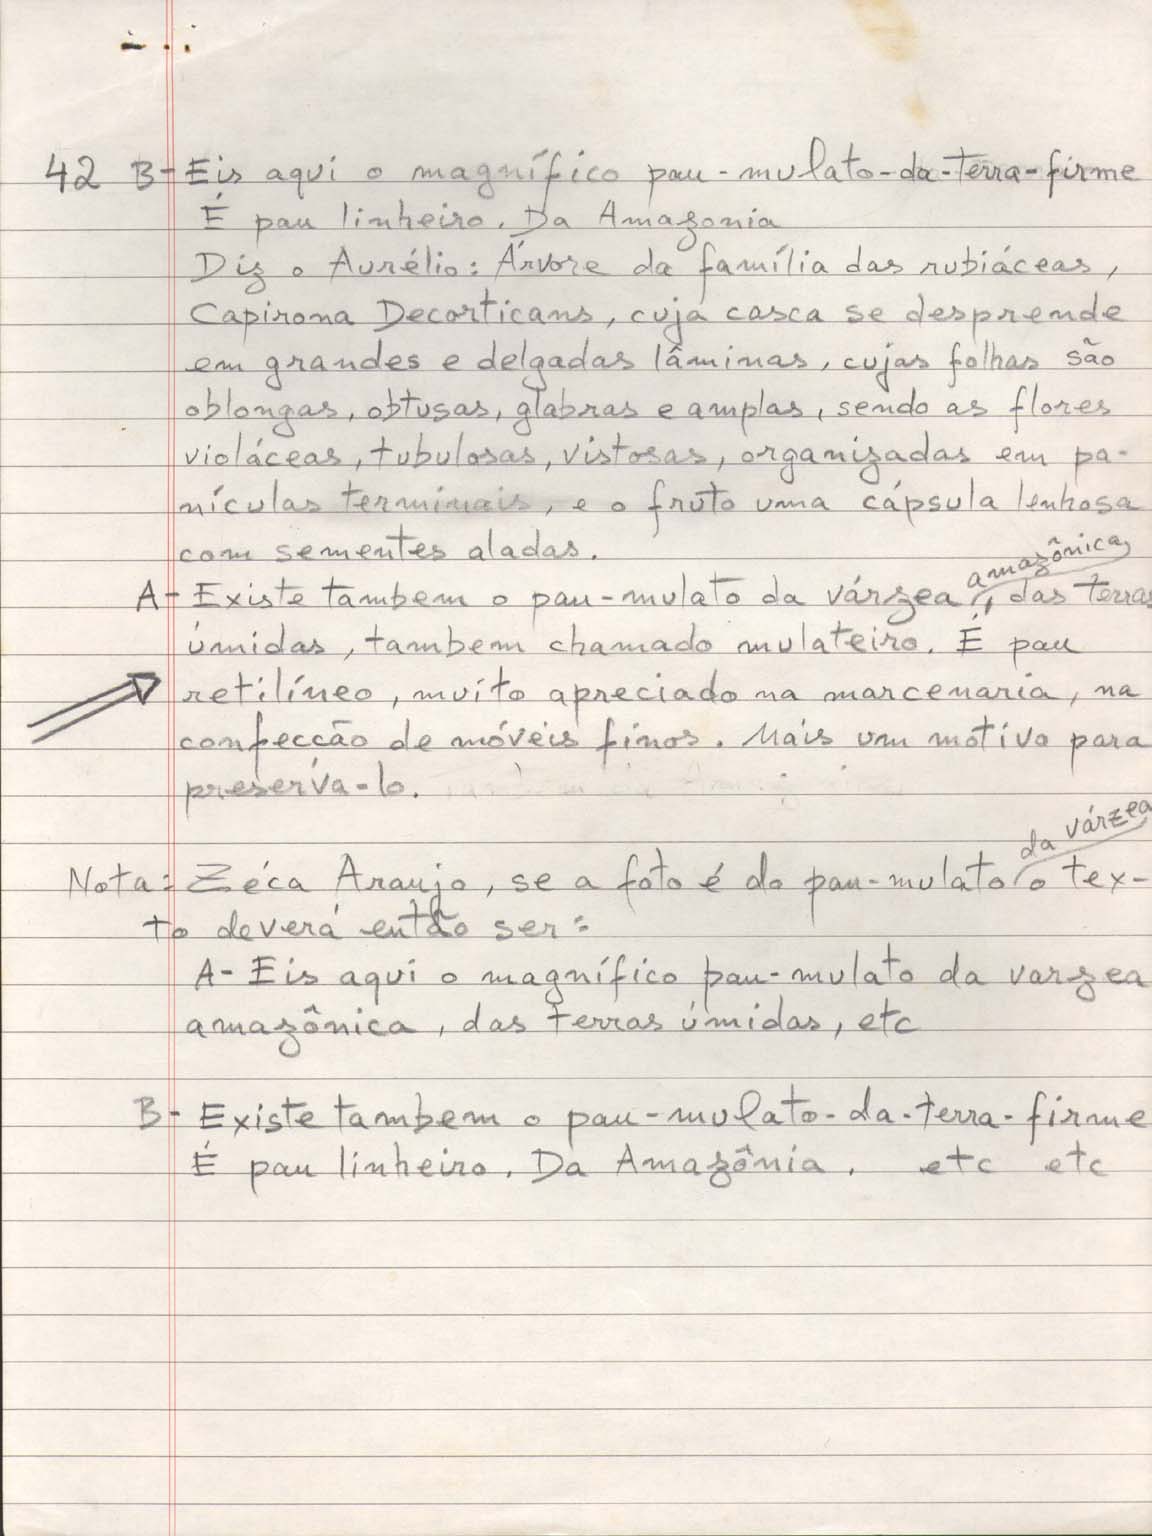 42 B- Eis aqui o magnífico pau-mulato-da-terra-firme
É pau linheiro. Da Amazonia
Diz o Aurélio: Árvore da família das rubiáceas,
Capirona Decorticans, cuja casca se desprende
em grandes e delgadas lâminas, cujas folhas são
oblongas, obtusas, glabras e amplas, sendo as flores
violáceas, tubulosas, vistosas, organizadas em pa-
nículas terminais, e o fruto uma cápsula lenhosa
com sementes aladas.
A- Existe tambem o pau-mulato da várzea amazônica, das terras
úmidas, tambem chamado mulateiro. É pau
retilíneo, muito apreciado na marcenaria, na
confecção de móveis finos. Mais um motivo para
preserva-lo.
Nota: Zéca Araujo, se a foto é do pau-mulato da várzea o tex-
to deverá então ser:
A- Eis aqui o magnífico pau-mulato da varzea
amazônica, das terras úmidas, etc
B- Existe tambem o pau-mulato-da-terra-firme
É pau linheiro. Da Amazônia. etc etc